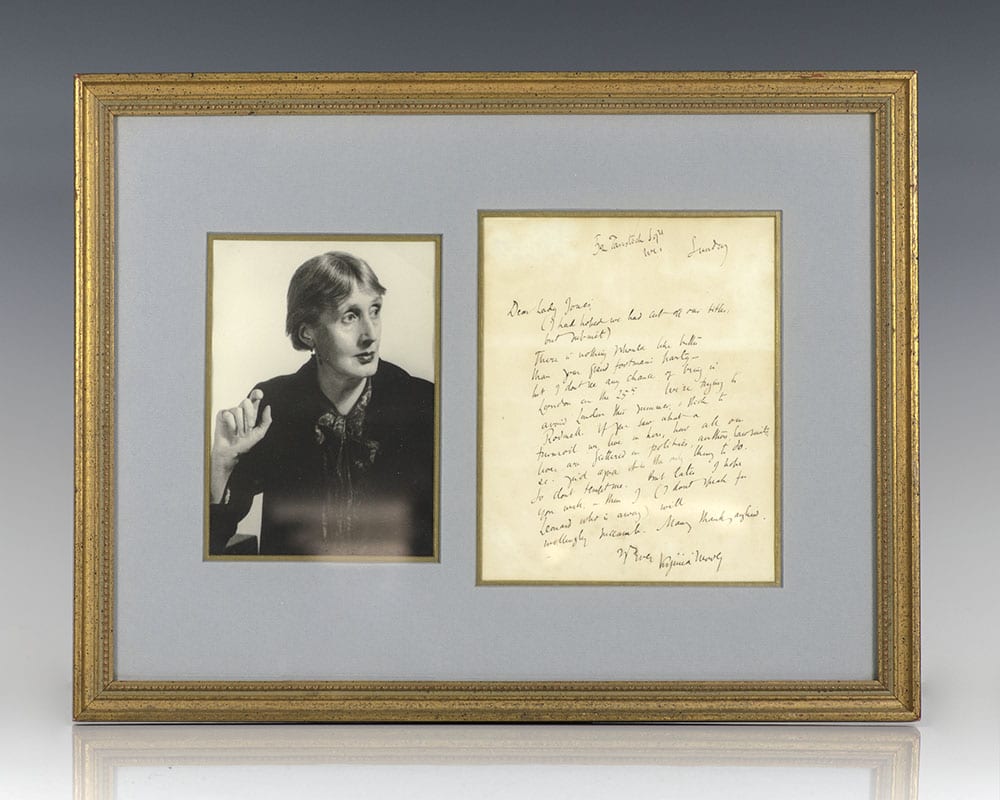 52 Tavistock Sqre
WC1 Sunday
Dear Lady Jones
(I had hoped we had cut off our titles,
but submit)
There is nothing I should like better
than your grand fortnight's party—
but I don't see any chance of being in
London on the 25th. We're trying to
avoid London this summer, & stick to
Rodmell. If you saw what a
turmoil we live in here, how all our
lives are in politics, authors lawsuits
&c. you'd agree it's the only thing to do.
So don't tempt me. But later I hope
you will, & then I (I don't speak for
Leonard who is away) will
willingly succumb. Many thanks again.
Yr Ever Virginia Woolf